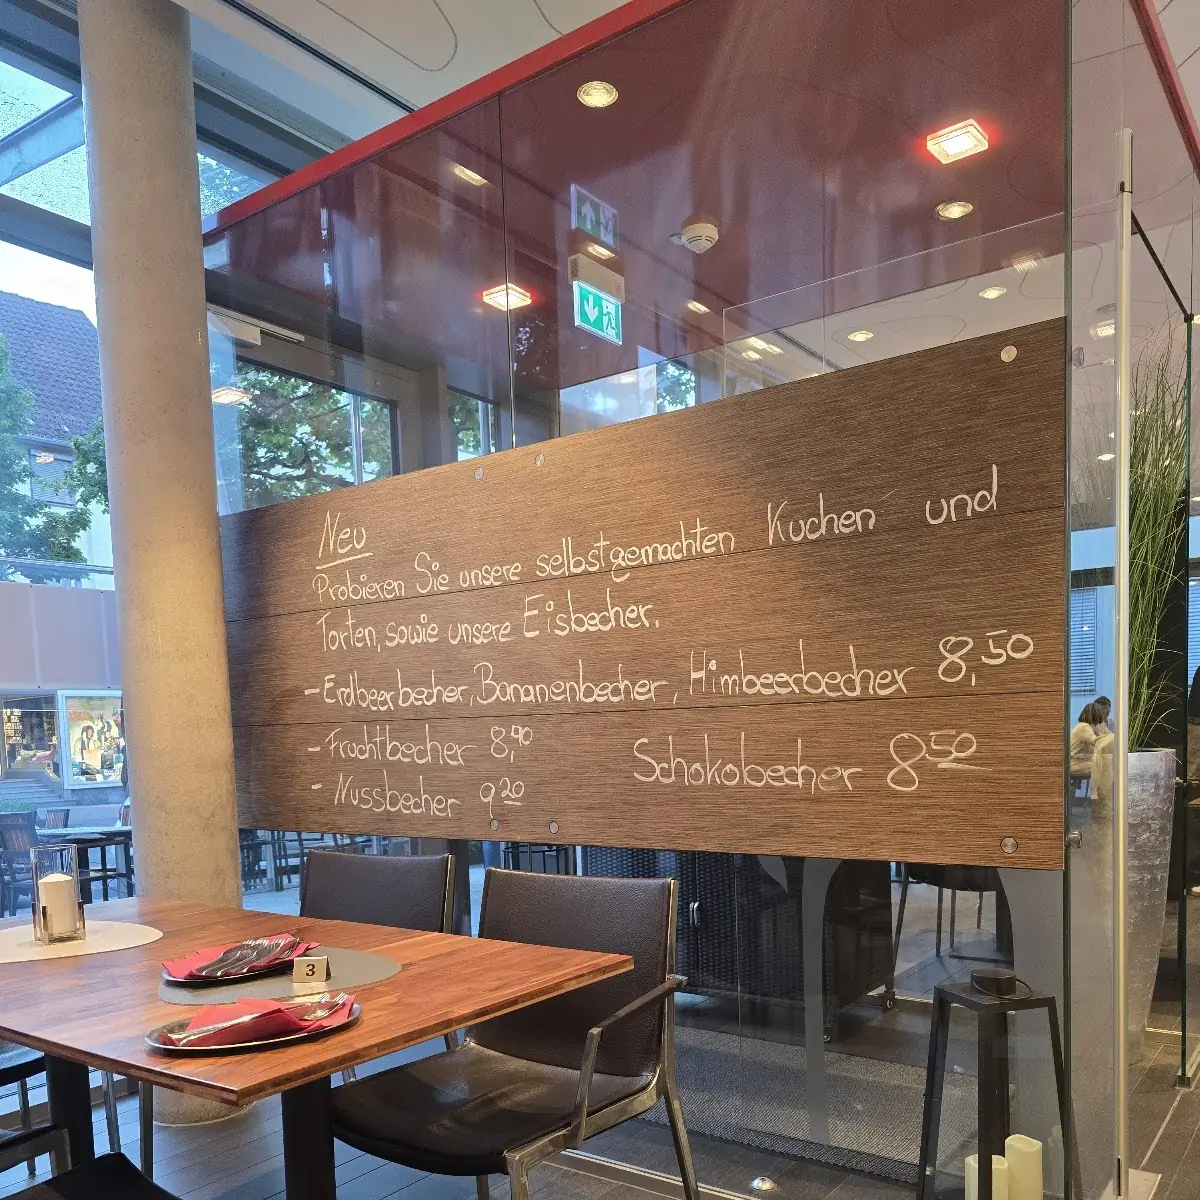 Neu
Probieren Sie unsere selbstgemachten Kuchen und
Torten, sowie unsere Eisbecher.
- Erdbeerbecher, Bananenbecher, Himbeerbecher 8,50
- Fruchtbecher 8,90 Schokobecher 8 50
- Nussbecher 9 20
3